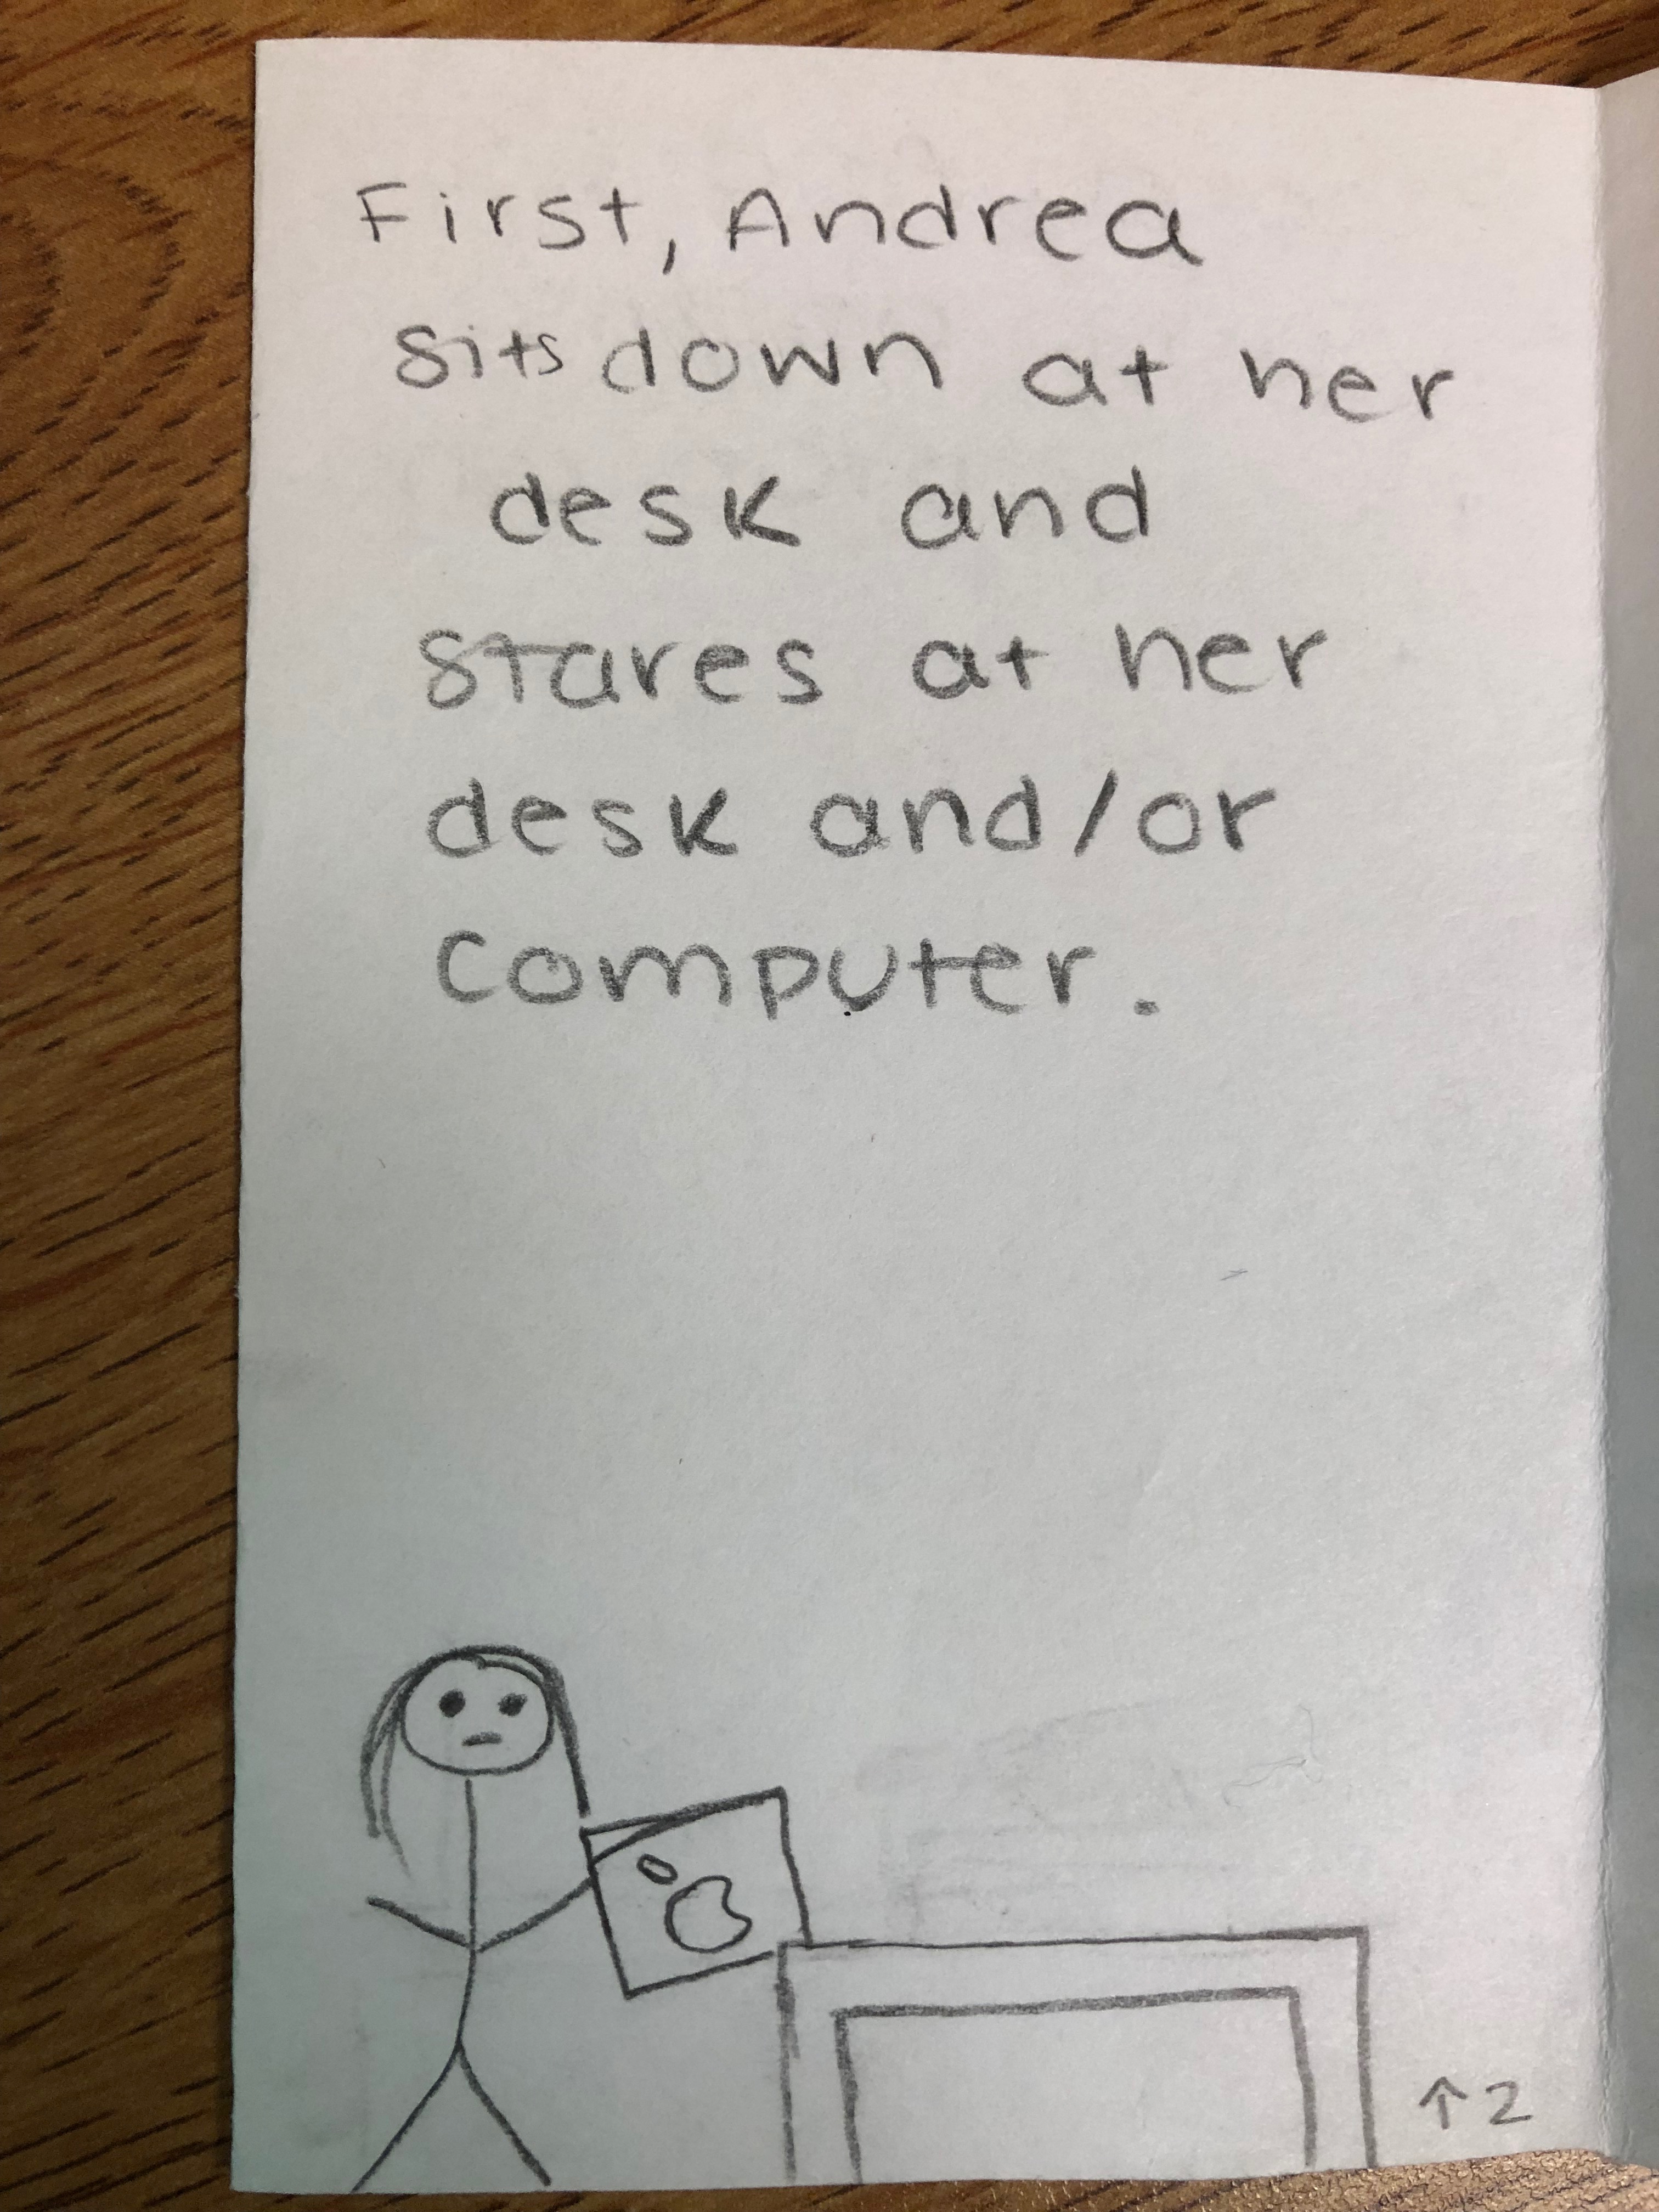 First, Andrea
sits down at her
desk and
stares at her
desk and/or
computer.
↑2